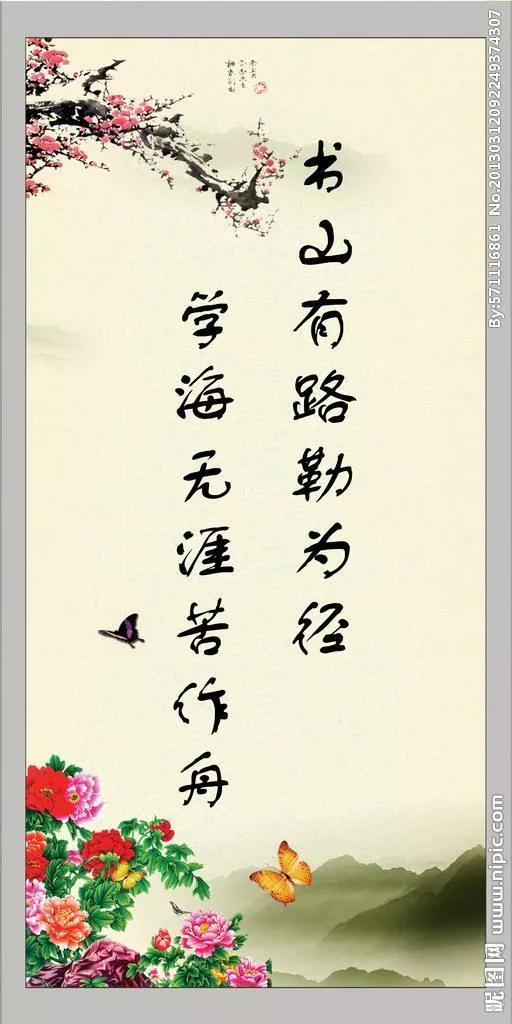 书山有路勒为径
学海无涯苦作舟
By:571116861 No.20130312092249374307
昵图网 www.nipic.com